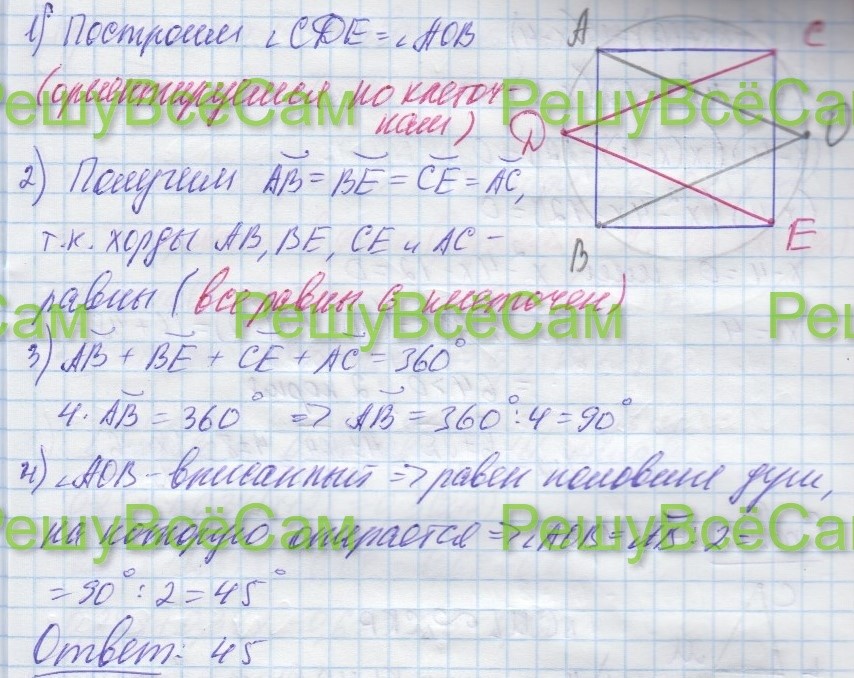 1) Построим ∠CDE = ∠AOB
(ориентируемся по клеточ-
кам)
A C
D O
B E
2) Получим ◡AB = ◡BE = ◡CE = ◡AC,
т.к. хорды AB, BE, CE и AC –
равны (все равны 6 клеточек)
3) ◡AB + ◡BE + ◡CE + ◡AC = 360°
4 · ◡AB = 360° => ◡AB = 360° : 4 = 90°
4) ∠AOB – вписанный => равен половине дуги,
на которую опирается => ∠AOB = ◡AB : 2 =
= 90° : 2 = 45°
Ответ: 45
РешуВсёСам РешуВсёСам
Сам РешуВсёСам Решу
РешуВсёСам РешуВсёСам